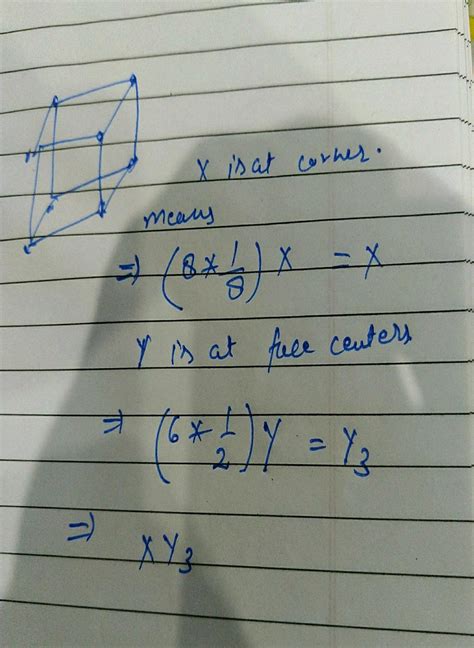 X is at corner.
means
⇒ (8 * 1/8) X = X
Y is at face centers
⇒ (6 * 1/2) Y = Y₃
⇒ XY₃